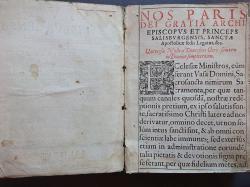 NOS PARIS
DEI GRATIA ARCHI
EPISCOPUS ET PRINCEPS
SALISBURGENSIS, SANCTÆ
Apostolicæ sedis Legatus, &c.
Universo Nostræ Diœcesis Clero salutem
in Domino sempiternam.
Ecclesiæ Ministros, cùm
ferant Vasa Domini, Sa
crosancta nimirum Sa
cramenta, per quæ tan
quam canales quosdã, nostræ rede
ptionis pretium, ex ipso salutis fon
te, sacratissimo Christi latere ad nos
derivatur, omnino decet, ut non so
lùm intus sancti sint, & ab omni con
scientiæ labe immunes; sed exteriùs
etiam in administratione eorundẽ,
talia pietatis & devotionis signa præ
referant, per quæ fidelium mores, ad